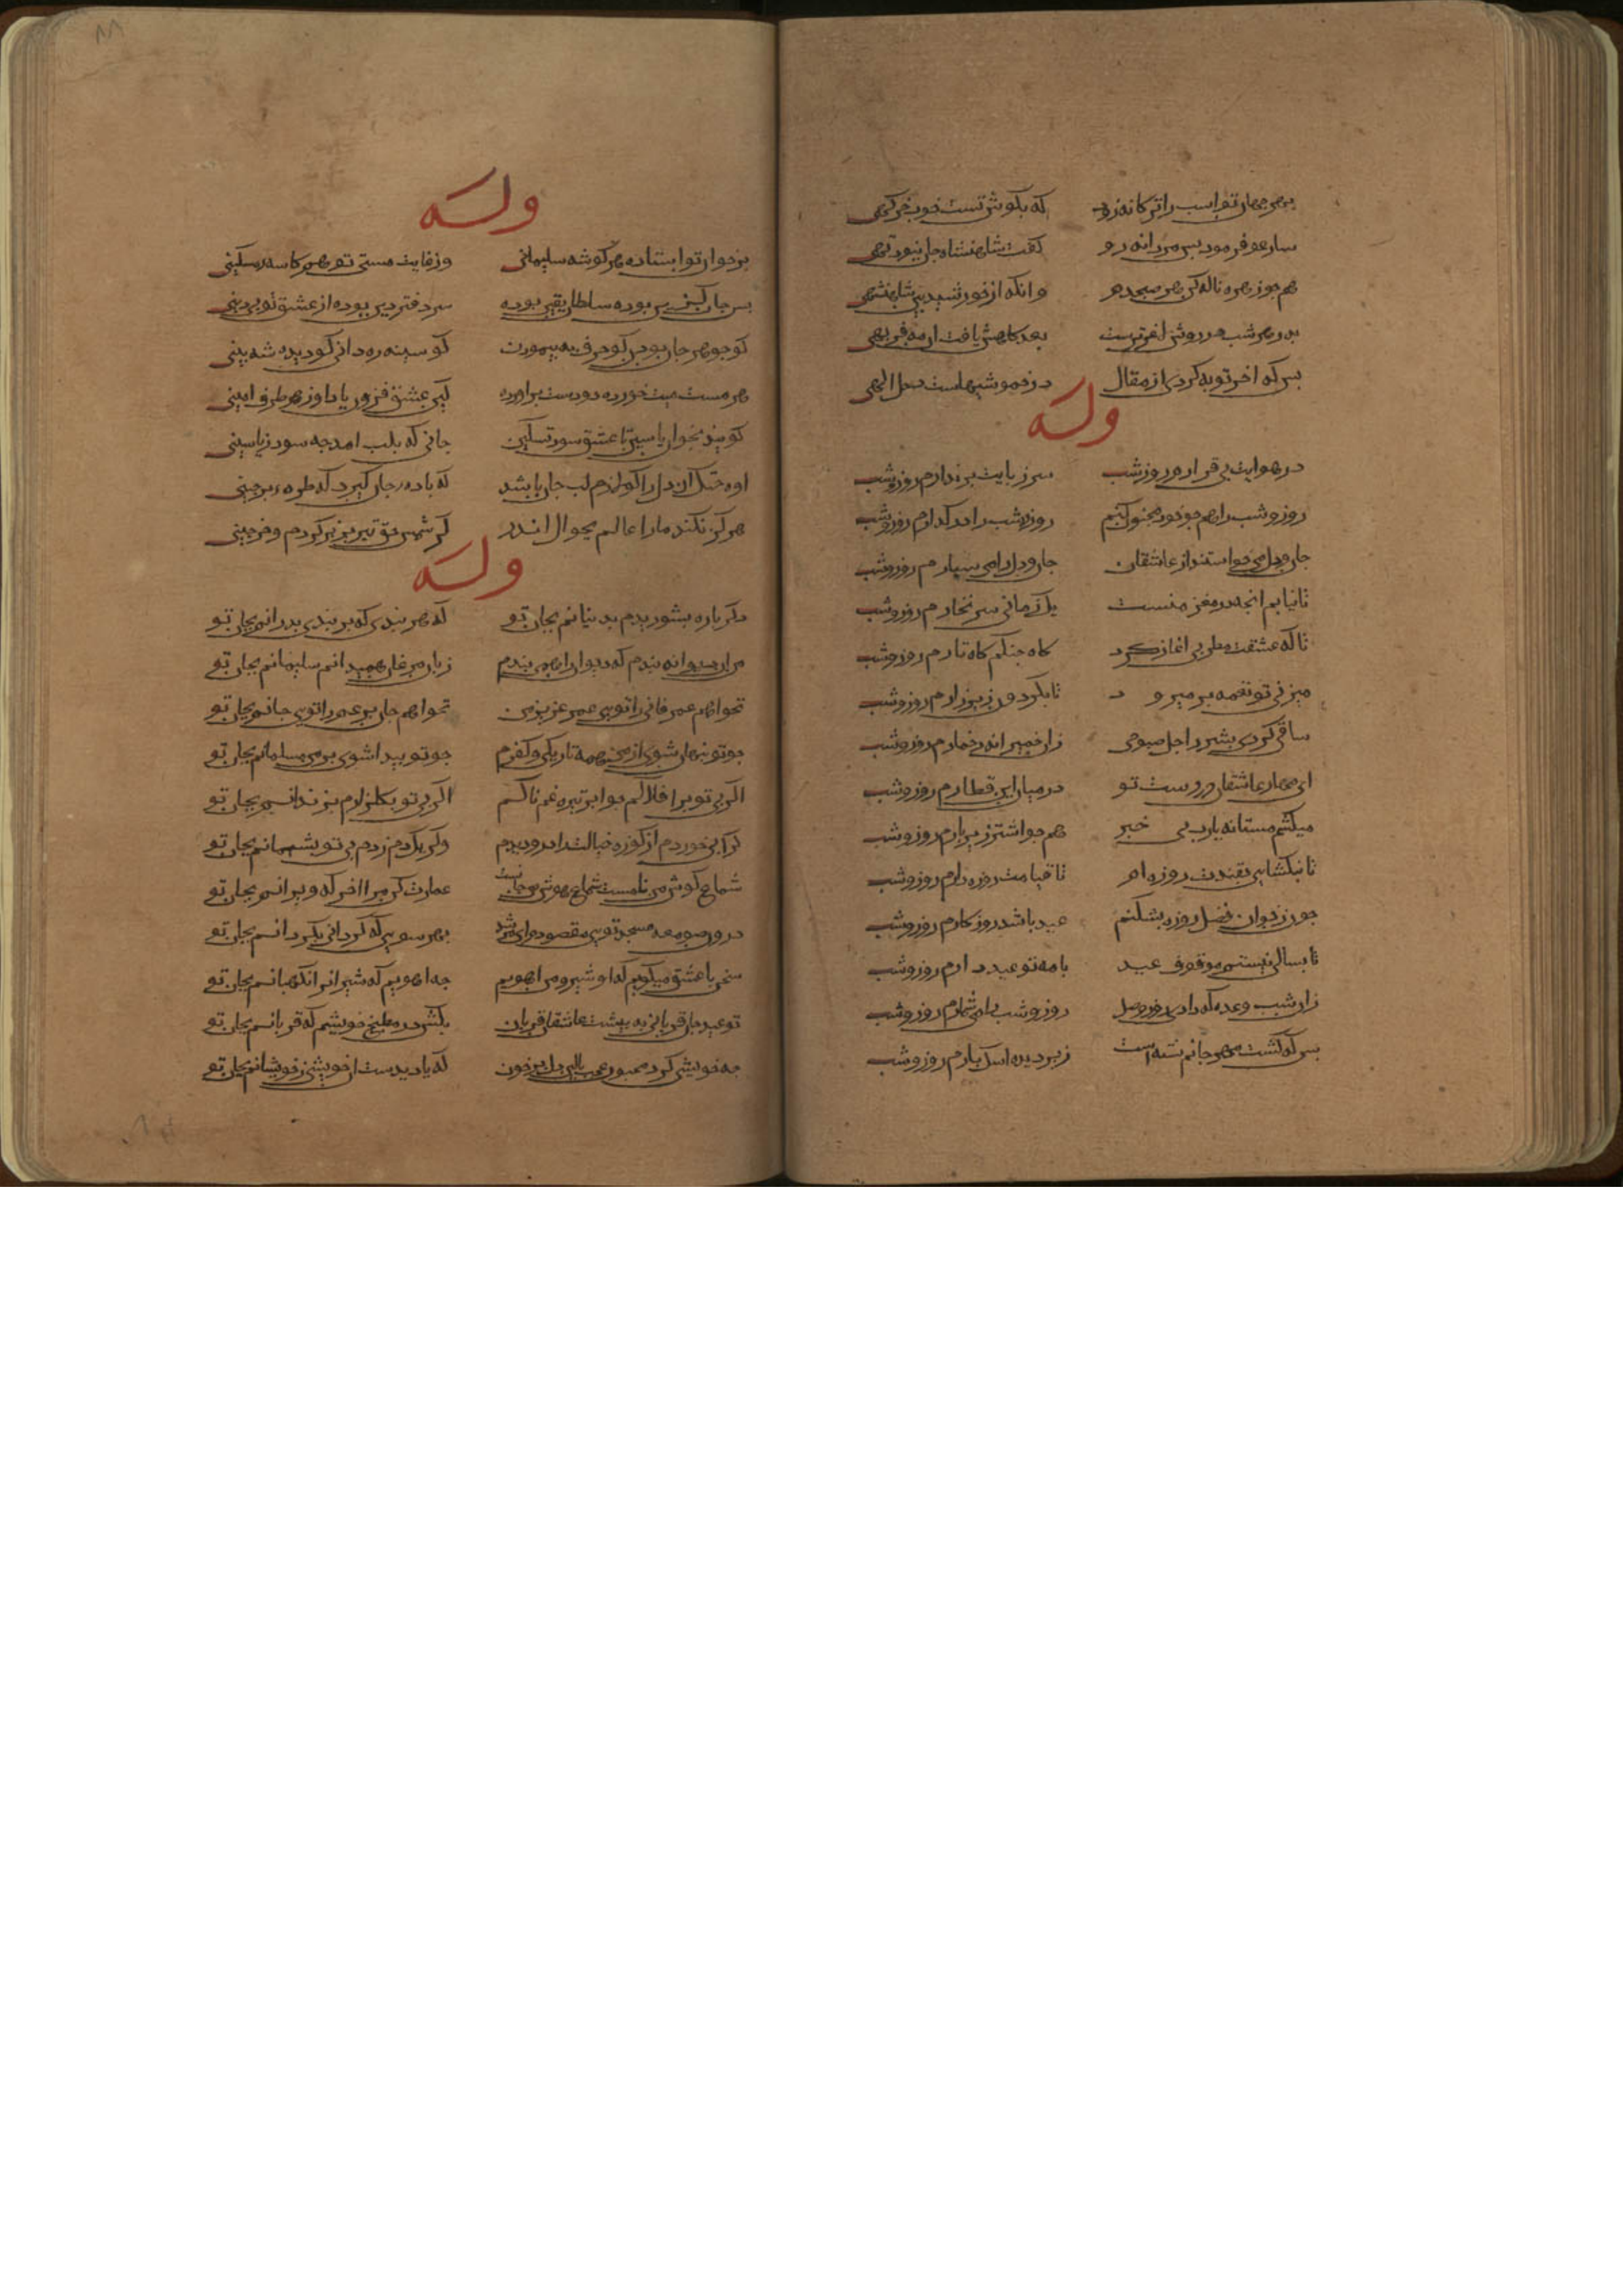 بهر جهان تو اسب را ترکانه زود که بگوش تست خوب خرگهی
سارعو فرمود بس مردانه رو گفت شاهنشاه جان نبود تهی
همجو زهره ناله کن هر صبحدم وانکه از خورشید بین شاهنشهی
بدر هر شب در روش لاغرترست بعد کاهش یافت آن مه فربهی
بس که اخر توبه کردی از مقال در خموشیهاست دخل الهی
وله
در هوایت بی قرارم روز و شب سر ز پایت بر ندارم روز و شب
روز و شب را همجو خود مجنون کنم روز و شب را کی گذارم روز و شب
جان و دل می خواستند از عاشقان جان و دل را می سپارم روز و شب
تا نیابم انجه در مغز منست یک زمانی سر نخارم روز و شب
تا که عشقت مطربی اغاز کرد گاه جنگم گاه تارم روز و شب
میزنی تو نغمه بر میرود تا بگردون زیر و زارم روز و شب
ساقی کردی بشر را جل صبوحی زان خمیر اندر خمارم روز و شب
ای مهار عاشقان در دست تو در میان این قطارم روز و شب
میکشم مستانه بارت بی خبر همجو اشتر زیر بارم روز و شب
تا بنکشایی بقندت روزه ام تا قیامت روزه دارم روز و شب
جون ز خوان فضل روزه بشکنم عید باشد روزگارم روز و شب
تا بسالی نیستم موقوف عید با مه تو عید دارم روز و شب
زان شب وعده که دادی روز وصل روز و شب را می شمارم روز و شب
بس که کشت مهر جانم تشنه است ز ابر دیده اشک بارم روز و شب
وله
بر خوان تو استاده هر گوشه سلیمانی وز غایت مستی تو همکاسه مسکینی
بس جان گزین بوده سلطان یقین بوده سردفتر دین بوده از عشق تو بی دینی
کو جوهر جان بودن کو حرف بپیمودن کو سینه ره دانی کو دیده شه بینی
هر مست میت خورده دو دست براورده کین عشق فزون بادا وز هر طرف امینی
گویند بخوان یاسین تا عشق شود تسکین جانی که بلب امد جه سود ز یاسینی
هرگز نکند ما را عالم بجوال اندر کز شمس حق تبریز پر کردم و خرجینی
وله
دگرباره بشوریدم بدنیانم بجان تو که هر بندی که بر بندی بدرانم بجان تو
من ان دیوانه بندم که دیوان را همی بندم زبان مرغان همی دانم سلیمانم بجان تو
نخواهم عمر فانی را تویی عمر عزیز من نخواهم جان پرغم را تویی جانم بجان تو
جو تو پنهان شوی از من همه تاریکی و کفرم جو تو پیدا شوی بر من مسلمانم بجان تو
اگر بی تو بر افلاکم جو ابر تیره غمناکم اگر بی تو بگلزارم بزندانم بجان تو
گر آبی خوردم از کوزه خیالت اندرو دیدم وگر یک دم زدم بی تو پشیمانم بجان تو
سماع گوش من نامت سماع هوش من جامت عمارت کن مرا اخر که ویرانم بجان تو
درون صومعه مسجد تویی مقصودم ای مرشد بهر سویی که گردانی بگردانم بجان تو
سخن با عشق میگویم که او شیر و من اهویم جه اهویم که شیران را نگهبانم بجان تو
تو عید جان قربانی به پیشت عاشقان قربان بکش در مطبخ خویشم که قربانم بجان تو
جه خویشی کرد که یادیدست از خویشی ز خویشانم بجان تو